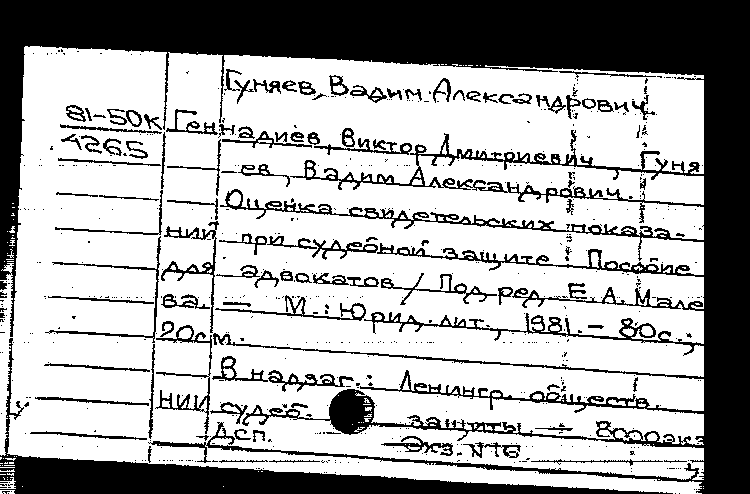 Гуняев, Вадим Александрович
81-50к Геннадиев, Виктор Дмитриевич, Гуня
4265
ев, Вадим Александрович.
Оценка свидетельских показа-
ний при судебной защите : Пособие
для адвокатов / Под ред. Е. А. Мале
ва. — М.: Юрид. лит., 1981. — 80с.;
20см.
В надзаг.: Ленингр. обществ.
НИИ судеб. защиты. — 8000экз
Дсп. Экз. N16